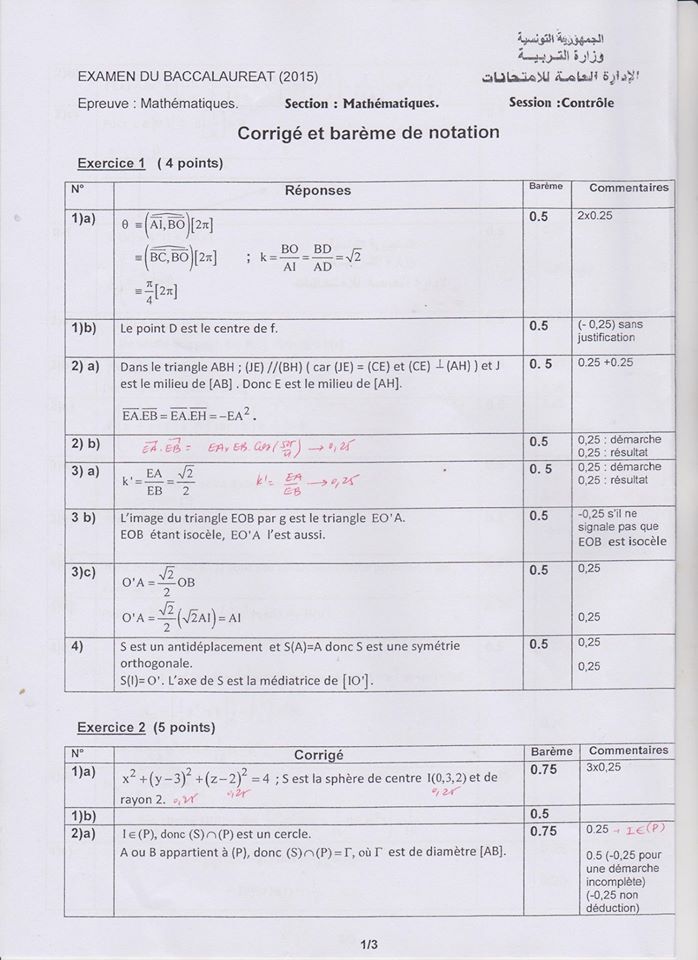 الجمهورية التونسية
وزارة التربية
الإدارة العامة للامتحانات
EXAMEN DU BACCALAUREAT (2015)
Epreuve : Mathématiques. Section : Mathématiques. Session :Contrôle
Corrigé et barème de notation
Exercice 1 ( 4 points)
N° Réponses Barème Commentaires
1)a) θ ≡ (AI, BO)[2π] 0.5 2x0.25
≡ (BC, BO)[2π] ; k = BO/AI = BD/AD = √2
≡ π/4 [2π]
1)b) Le point D est le centre de f. 0.5 (- 0,25) sans
justification
2) a) Dans le triangle ABH ; (JE) //(BH) ( car (JE) = (CE) et (CE) ⊥ (AH) ) et J 0. 5 0.25 +0.25
est le milieu de [AB] . Donc E est le milieu de [AH].
EA.EB = EA.EH = −EA².
2) b) EA.EB = EA x EB. Cos( /4) → 0,25 0.5 0,25 : démarche
0,25 : résultat
3) a) k' = EA/EB = √2/2 k' = EA/EB → 0,25 0. 5 0,25 : démarche
0,25 : résultat
3 b) L'image du triangle EOB par g est le triangle EO'A. 0.5 -0,25 s'il ne
EOB étant isocèle, EO'A l'est aussi. signale pas que
EOB est isocèle
3)c) O'A = √2/2 OB 0.5 0,25
O'A = √2/2 (√2AI) = AI 0,25
4) S est un antidéplacement et S(A)=A donc S est une symétrie 0.5 0,25
orthogonale. 0,25
S(I)= O'. L'axe de S est la médiatrice de [IO'].
Exercice 2 (5 points)
N° Corrigé Barème Commentaires
1)a) x² + (y−3)² + (z−2)² = 4 ; S est la sphère de centre I(0,3,2) et de 0.75 3x0,25
rayon 2. 0,25 0,25 0,25
1)b) 0.5
2)a) I∈(P), donc (S)∩(P) est un cercle. 0.75 0.25 → I∈(P)
A ou B appartient à (P), donc (S)∩(P) = Γ, où Γ est de diamètre [AB]. 0.5 (-0,25 pour
une démarche
incomplète)
(-0,25 non
déduction)
1/3